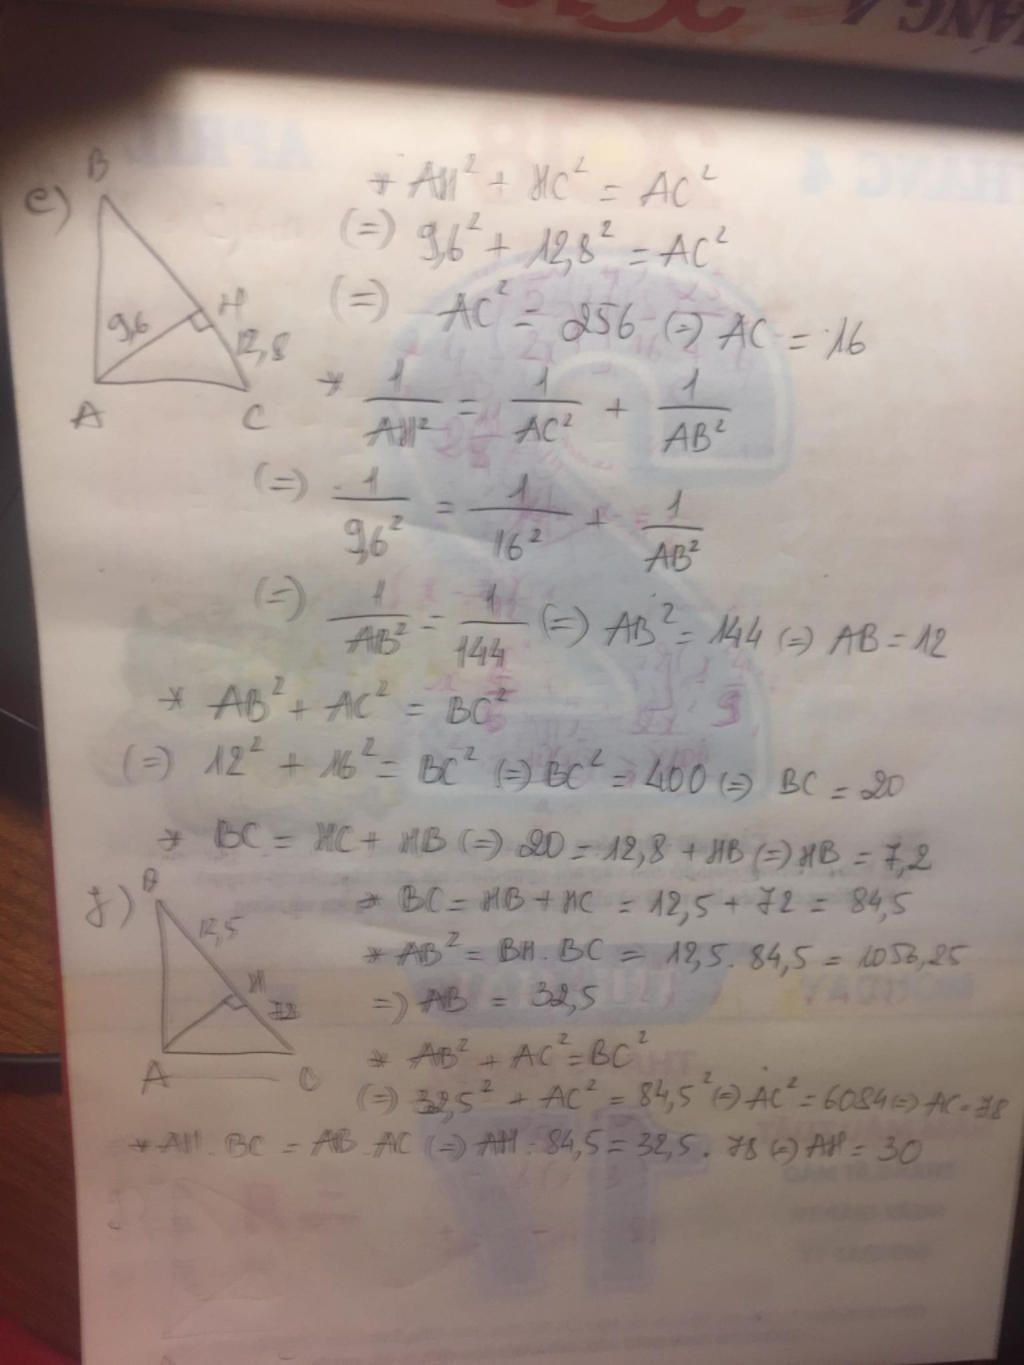 e)
B
9,6
H
12,8
A
C
* AH² + HC² = AC²
(=) 9,6² + 12,8² = AC²
(=) AC² = 256 (=) AC = 16
* 1/AH² = 1/AC² + 1/AB²
(=) 1/9,6² = 1/16² + 1/AB²
(=) 1/AB² = 1/144 (=) AB² = 144 (=) AB = 12
* AB² + AC² = BC²
(=) 12² + 16² = BC² (=) BC² = 400 (=) BC = 20
* BC = HC + HB (=) 20 = 12,8 + HB (=) HB = 7,2
f)
B
12,5
H
72
A
C
* BC = HB + HC = 12,5 + 72 = 84,5
* AB² = BH . BC = 12,5 . 84,5 = 1056,25
=) AB = 32,5
* AB² + AC² = BC²
(=) 32,5² + AC² = 84,5² (=) AC² = 6084 (=) AC = 78
* AH . BC = AB . AC (=) AH . 84,5 = 32,5 . 78 (=) AH = 30